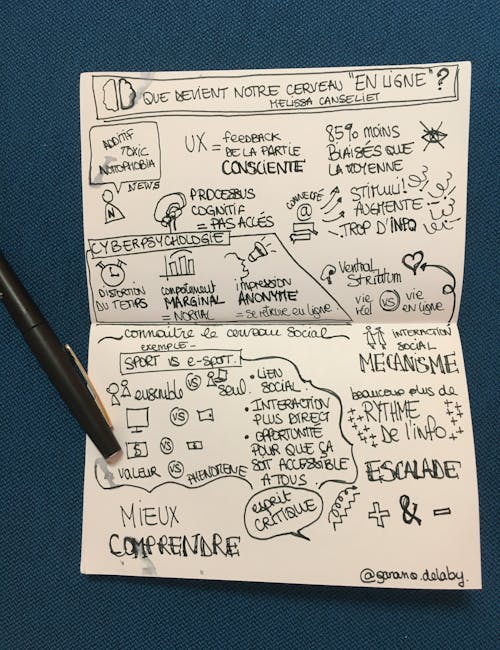 QUE DEVIENT NOTRE CERVEAU "EN LIGNE"?
MELISSA CANSELIET
ADDITIF
TOXIC
NOTOPHOBIA
NEWS
UX = feedback
DE LA PARTIE
CONSCIENTE
85% moins
BIAISÉS QUE
LA MOYENNE
PROCESSUS
COGNITIF
= PAS ACCÉS
CONNECTÉ
@
STIMULI
AUGMENTE
TROP D'INFO
CYBERPSYCHOLOGIE
DISTORTION
DU TEMPS
comportement
MARGINAL
= NORMAL
impression
ANONYME
= Se retrouve en ligne
Ventral
Striatum
vie
réel
VS
vie
en ligne
connaître le cerveau social
exemple
SPORT VS e-SPORT.
ensemble VS seul
VS
$ VS
VALEUR VS PHÉNOMÈNE
• LIEN
SOCIAL
• INTERACTION
PLUS DIRECT
• OPPORTUNITÉ
POUR QUE ÇA
SOIT ACCESSIBLE
A TOUS
INTERACTION
SOCIAL
MECANISME
beaucoup plus de
RYTHME
De l'info
ESCALADE
+ & -
esprit
CRITIQUE
MIEUX
COMPRENDRE